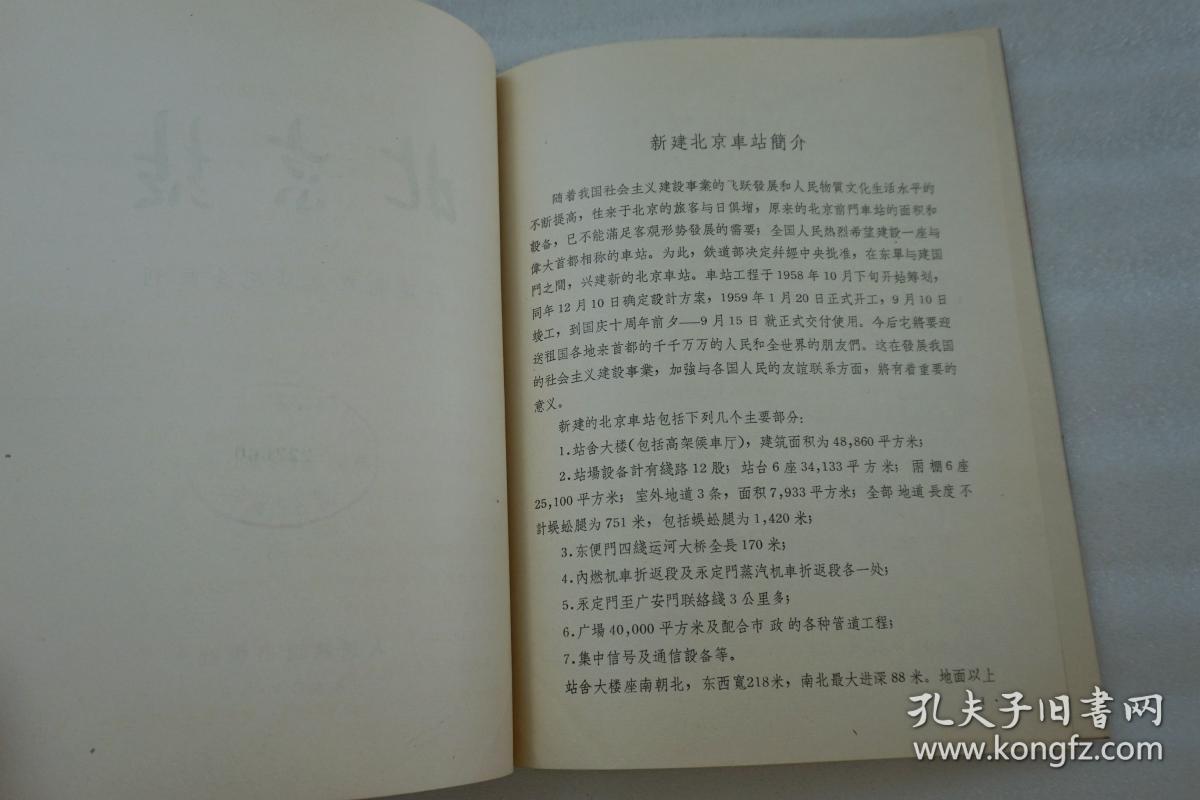 新建北京車站簡介
随着我国社会主义建設事業的飞跃發展和人民物質文化生活水平的
不断提高，往来于北京的旅客与日俱增，原来的北京前門車站的面积和
設备，已不能滿足客观形势發展的需要；全国人民热烈希望建設一座与
偉大首都相称的車站。为此，鉄道部决定幷經中央批准，在东單与建国
門之間，兴建新的北京車站。車站工程于1958年10月下旬开始筹划，
同年12月10日确定設計方案，1959年1月20日正式开工，9月10日
竣工，到国庆十周年前夕——9月15日就正式交付使用。今后它將要迎
送祖国各地来首都的千千万万的人民和全世界的朋友們。这在發展我国
的社会主义建設事業，加強与各国人民的友誼联系方面，將有着重要的
意义。
新建的北京車站包括下列几个主要部分：
1.站舍大楼（包括高架候車厅），建筑面积为48,860平方米；
2.站場設备計有綫路12股；站台6座34,133平方米；雨棚6座
25,100平方米；室外地道3条，面积7,933平方米；全部地道長度不
計蜈蚣腿为751米，包括蜈蚣腿为1,420米；
3.东便門四綫运河大桥全長170米；
4.內燃机車折返段及永定門蒸汽机車折返段各一处；
5.永定門至广安門联絡綫3公里多；
6.广場40,000平方米及配合市政的各种管道工程；
7.集中信号及通信設备等。
站舍大楼座南朝北，东西寬218米，南北最大进深88米。地面以上
孔夫子旧书网
www.kongfz.com